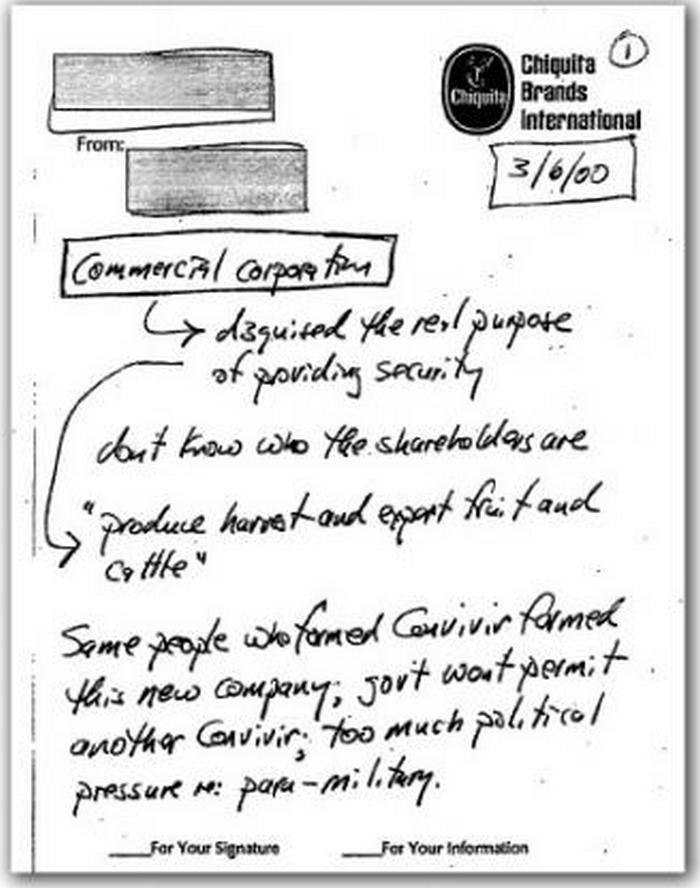 1
Chiquita
Chiquita
Brands
International
From:
3/6/00
Commercial corporation
disguised the real purpose
of providing security
don't know who the shareholders are
"produce harvest and export fruit and
cattle"
Same people who formed Convivir formed
this new company; gov't won't permit
another Convivir; too much political
pressure re: para-military.
____For Your Signature ____For Your Information